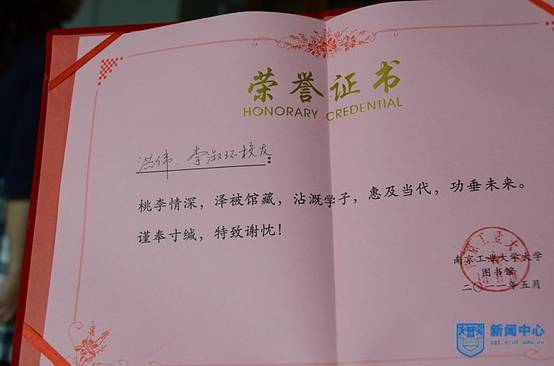 荣誉证书
HONORARY CREDENTIAL
洪伟 李淑环校友：
桃李情深，泽被馆藏，沾溉学子，惠及当代，功垂未来。
谨奉寸缄，特致谢忱！
南京工业大学大学
图书馆
二〇一一年五月
新闻中心